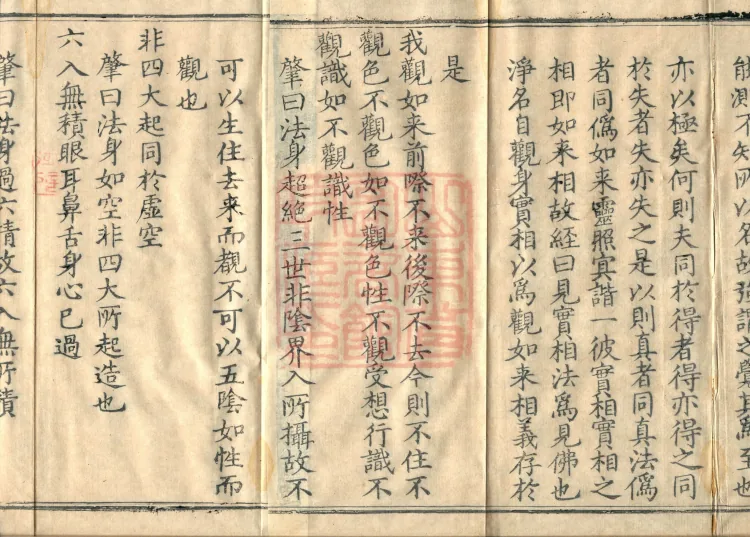 能測不知所以名故強謂之覺其為至也
亦以極矣何則夫同於得者得亦得之同
於失者失亦失之是以則真者同真法偽
者同偽如来靈照㝠諧一彼實相實相之
相即如来相故経曰見實相法為見佛也
淨名自觀身實相以為觀如来相義存於
是
我觀如来前際不来後際不去今則不住不
觀色不觀色如不觀色性不觀受想行識不
觀識如不觀識性
肇曰法身超絶三世非陰界入所攝故不
可以生住去来而覩不可以五陰如性而
觀也
非四大起同於虛空
肇曰法身如空非四大所起造也
六入無積眼耳鼻舌身心已過
肇曰法身過六情故六入無所積